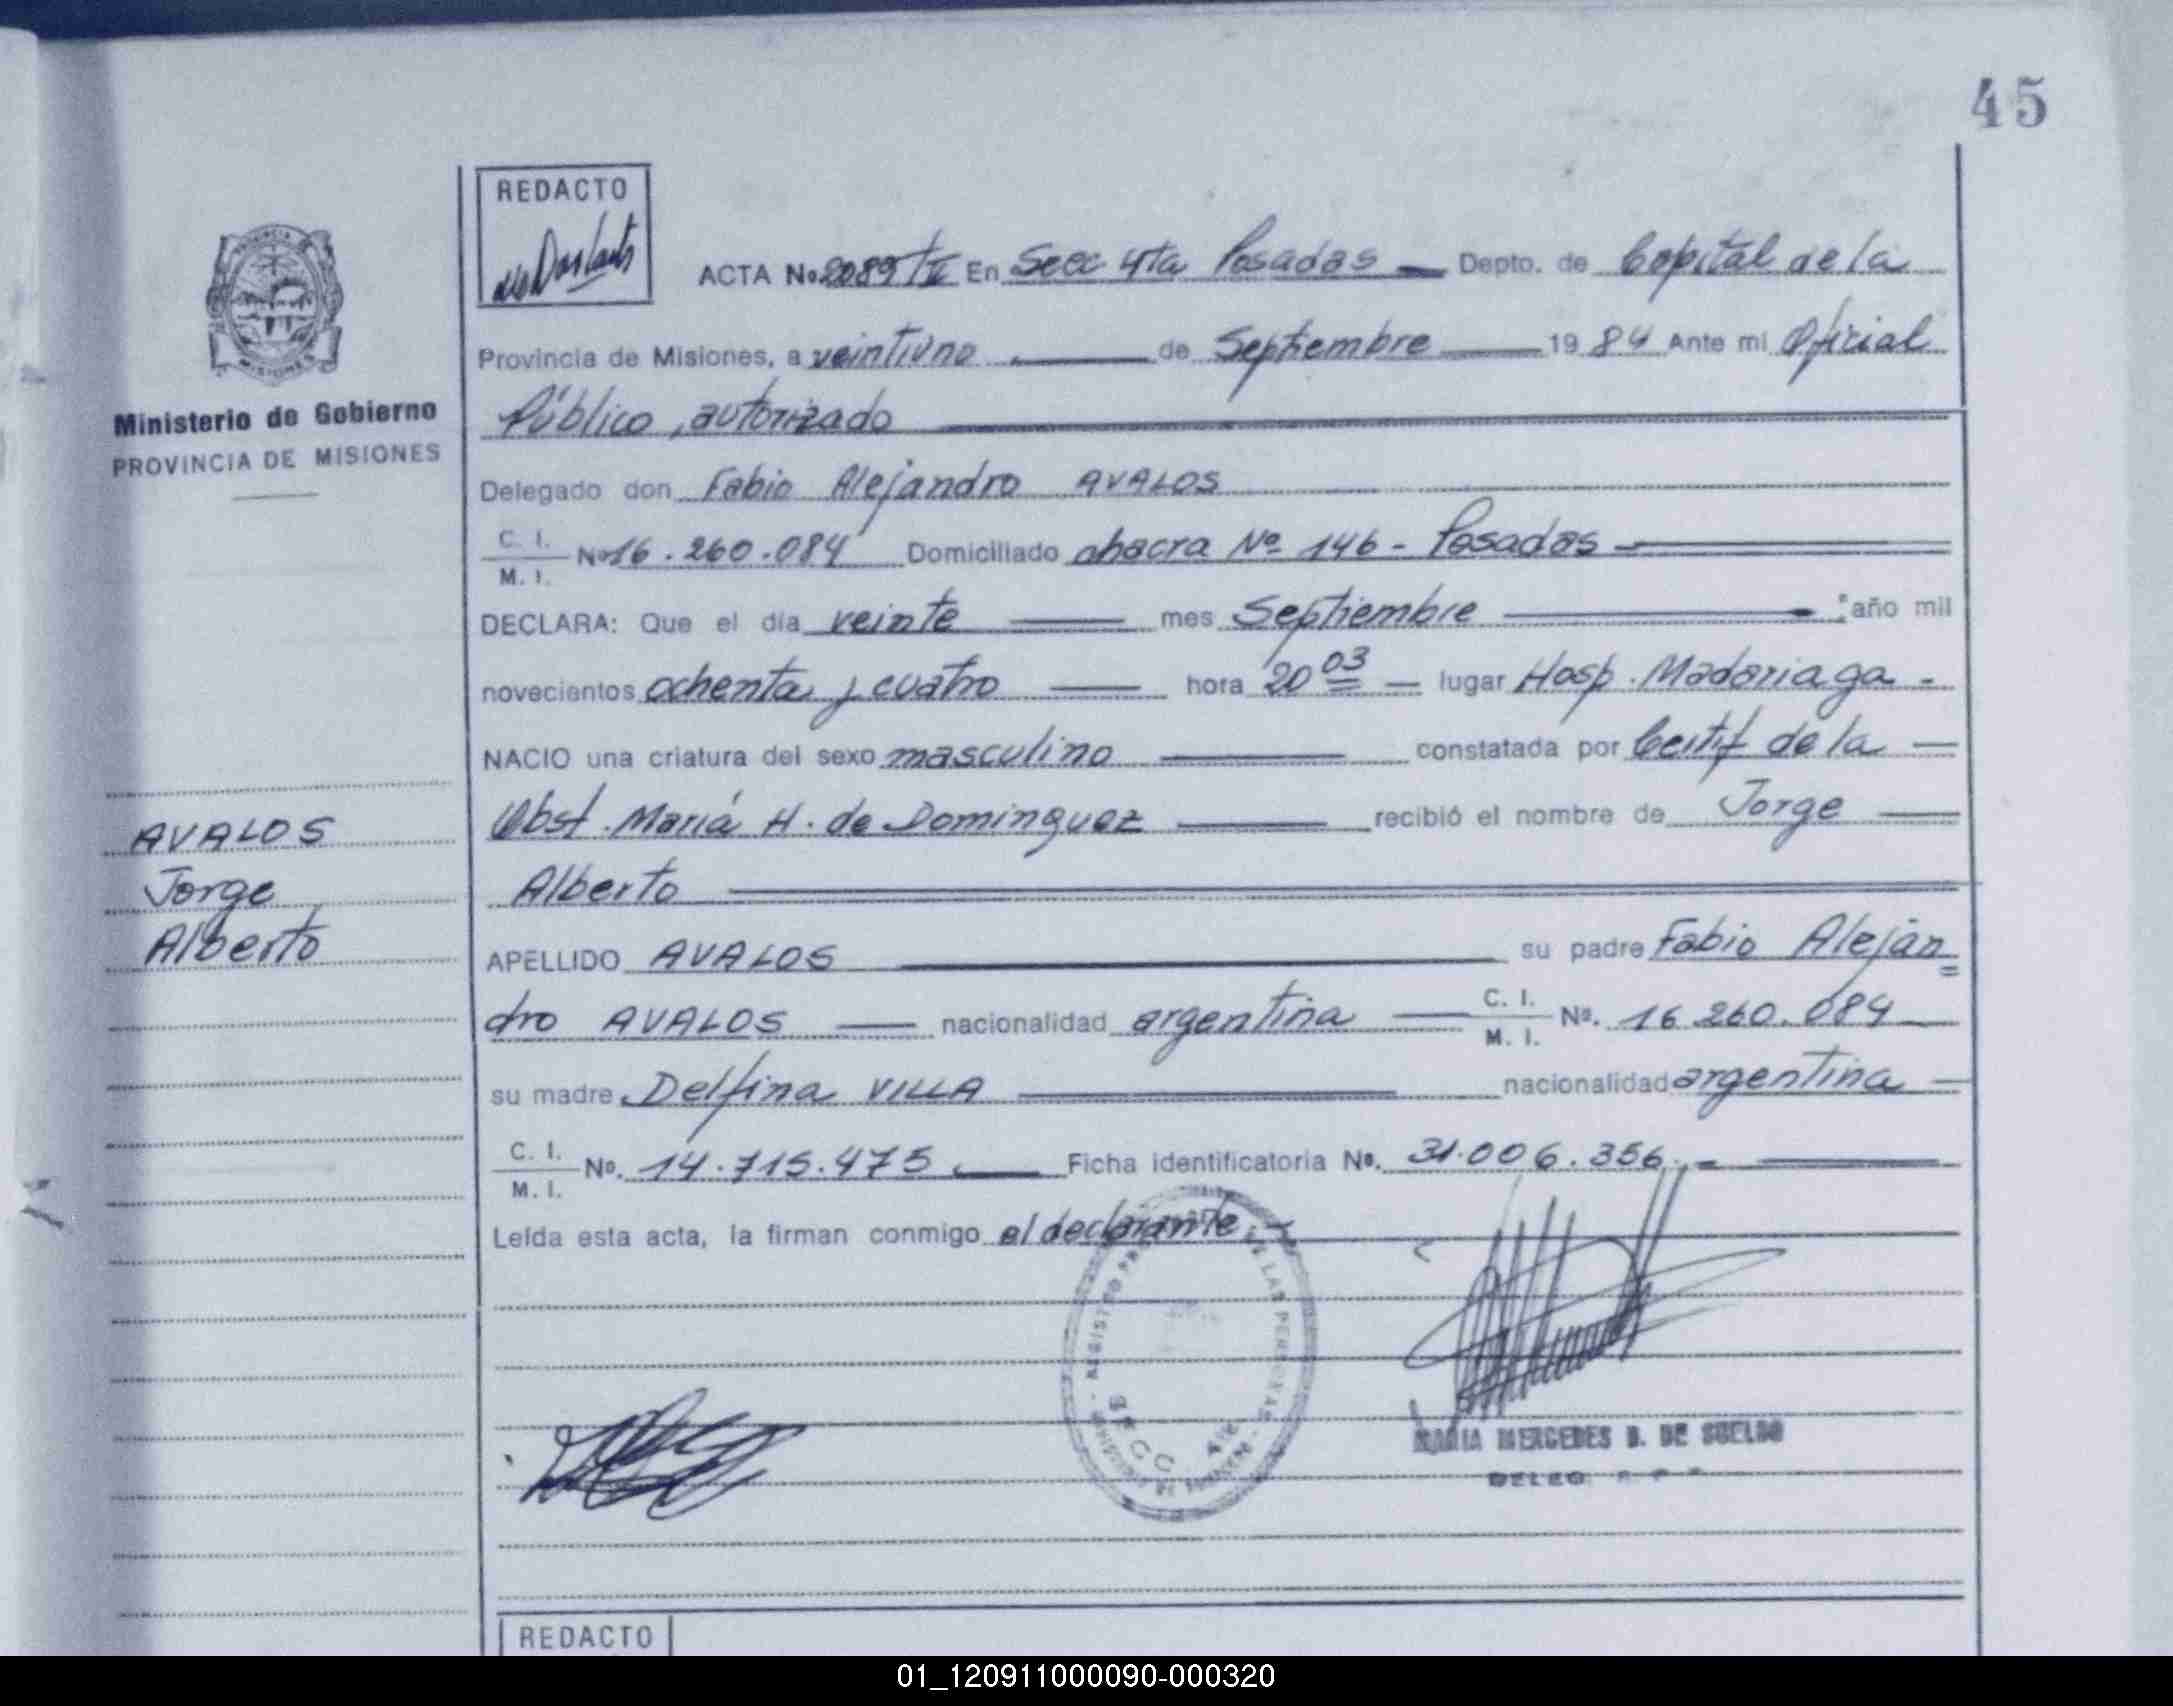 45
REDACTO
ACTA No. 2089/II En Secc 4ta Posadas — Depto. de Capital de la
Provincia de Misiones, a veintiuno — de Septiembre — 19 84 Ante mi Oficial
Público, autorizado
Ministerio de Gobierno
PROVINCIA DE MISIONES
Delegado don Fabio Alejandro AVALOS
C. I.
M. I. No 16.260.084 Domiciliado chacra Nº 146 - Posadas —
DECLARA: Que el día veinte — mes Septiembre — año mil
novecientos ochenta y cuatro — hora 20 03 — lugar Hosp. Madariaga -
NACIO una criatura del sexo masculino — constatada por Certif de la —
Obst. María H. de Dominguez — recibió el nombre de Jorge —
Alberto —
AVALOS
Jorge
Alberto
APELLIDO AVALOS — su padre Fabio Alejan=
dro AVALOS — nacionalidad argentina — C. I.
M. I. Nº. 16.260.084
su madre Delfina VILLA — nacionalidad argentina —
C. I.
M. I. Nº. 14.715.475 — Ficha identificatoria Nº. 31.006.356.- —
Leída esta acta, la firman conmigo el declarante —
DE LAS PERSONAS
SECC 4ta
MARIA MERCEDES B. DE SUELDO
DELEG.
REDACTO
01_120911000090-000320